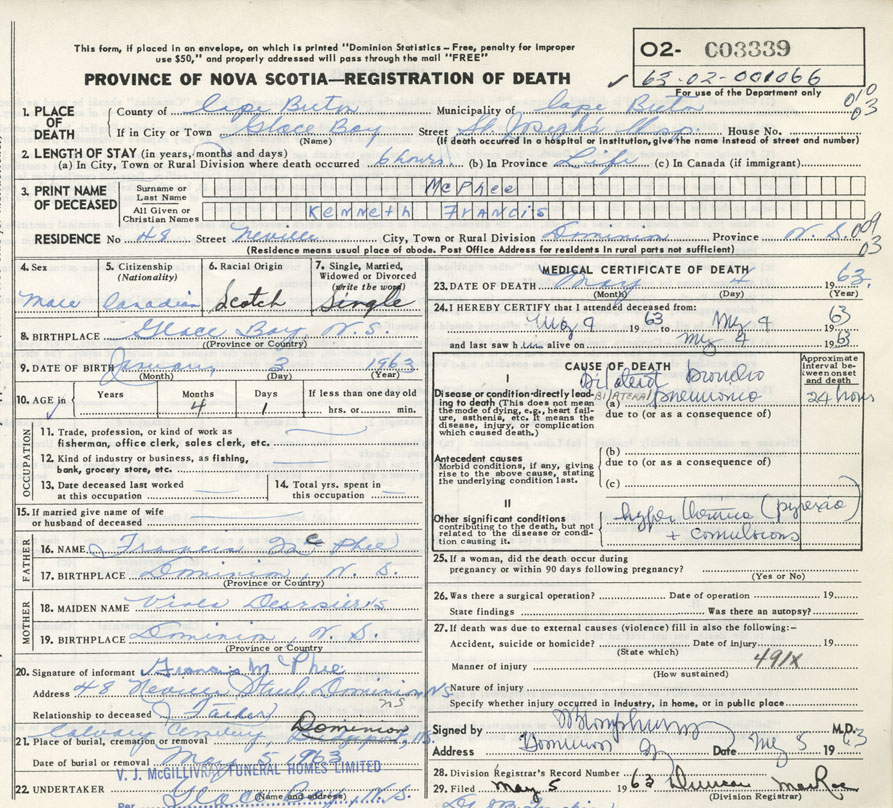 This form, if placed in an envelope, on which is printed "Dominion Statistics – Free, penalty for improper
use $50," and properly addressed will pass through the mail "FREE"
O2- C03339
✓ 63-02-001066
For use of the Department only
PROVINCE OF NOVA SCOTIA—REGISTRATION OF DEATH
1. PLACE OF DEATH County of Cape Breton Municipality of Cape Breton 010
If in City or Town Glace Bay Street St. Joseph's Hosp. House No. 03
(Name) (If death occurred in a hospital or institution, give the name instead of street and number)
2. LENGTH OF STAY (in years, months and days)
(a) In City, Town or Rural Division where death occurred 6 hours (b) In Province Life (c) In Canada (if immigrant)
3. PRINT NAME OF DECEASED Surname or Last Name McPhee
All Given or Christian Names Kenneth Francis
RESIDENCE No 48 Street Neville City, Town or Rural Division Dominion Province N. S. 009
(Residence means usual place of abode. Post Office Address for residents in rural parts not sufficient) 03
4. Sex 5. Citizenship (Nationality) 6. Racial Origin 7. Single, Married, Widowed or Divorced (write the word)
Male Canadian Scotch Single
8. BIRTHPLACE Glace Bay, N. S.
(Province or Country)
9. DATE OF BIRTH January 3 1963
(Month) (Day) (Year)
10. AGE in Years Months Days If less than one day old
4 1 hrs. or min.
OCCUPATION
11. Trade, profession, or kind of work as
fisherman, office clerk, sales clerk, etc.
12. Kind of industry or business, as fishing,
bank, grocery store, etc.
13. Date deceased last worked
at this occupation
14. Total yrs. spent in
this occupation
15. If married give name of wife
or husband of deceased
FATHER
16. NAME Francis McPhee
17. BIRTHPLACE Dominion, N. S.
(Province or Country)
MOTHER
18. MAIDEN NAME Viola
19. BIRTHPLACE Dominion, N. S.
(Province or Country)
20. Signature of informant Francis McPhee
Address 48 Dominion NS
Relationship to deceased Father NS
Calvary Cemetery Dominion
21. Place of burial, cremation or removal
Date of burial or removal May 5 1963
V. J. McGILLIVRAY FUNERAL HOMES LIMITED
22. UNDERTAKER Glace Bay, N.S.
(Name and address)
Per
MEDICAL CERTIFICATE OF DEATH
23. DATE OF DEATH May 4 1963
(Month) (Day) (Year)
24. I HEREBY CERTIFY that I attended deceased from:
May 4 1963 to May 4 1963
and last saw him alive on May 4 1963
CAUSE OF DEATH
Approximate interval between onset and death
I
Disease or condition directly lead-
ing to death (This does not mean
the mode of dying, e.g., heart fail-
ure, asthenia, etc. It means the
disease, injury, or complication
which caused death.)
Bilateral broncho
BILATERAL
(a) pneumonia 24 hours
due to (or as a consequence of)
Antecedent causes
Morbid conditions, if any, giving
rise to the above cause, stating
the underlying condition last.
(b)
due to (or as a consequence of)
(c)
II
Other significant conditions
contributing to the death, but not
related to the disease or condi-
tion causing it.
hyperthermia (pyrexia)
+ convulsions
25. If a woman, did the death occur during
pregnancy or within 90 days following pregnancy?
(Yes or No)
26. Was there a surgical operation? Date of operation 19
State findings Was there an autopsy?
27. If death was due to external causes (violence) fill in also the following:–
Accident, suicide or homicide? Date of injury 19
(State which)
Manner of injury 491X
(How sustained)
Nature of injury
Specify whether injury occurred in industry, in home, or in public place
Signed by M.D.
Address Dominion Date May 5 1963
28. Division Registrar's Record Number
29. Filed May 5 1963 Duncan MacRae
(Division Registrar)